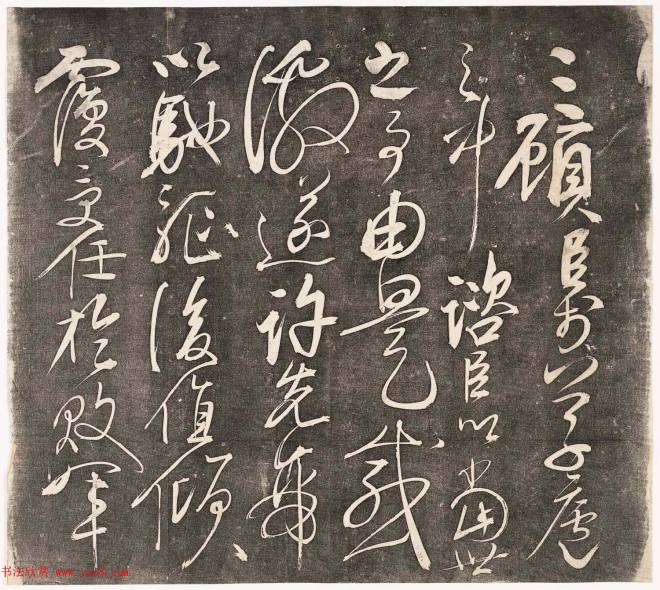 三顧臣於草廬
之中諮臣以當世
之事由是感
激遂許先帝
以馳驅後值傾
覆受任於敗軍
书法欣赏 www.yac8.com